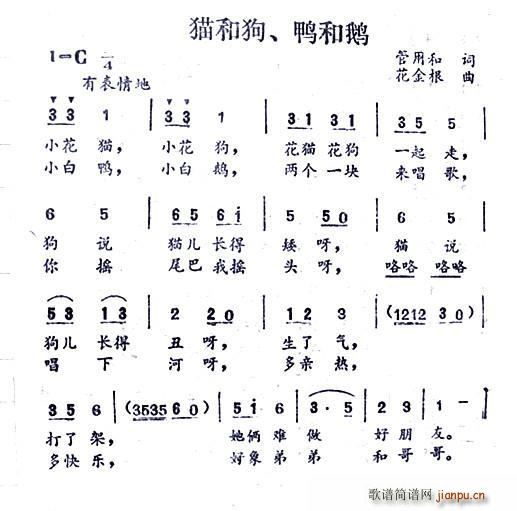 猫和狗、鸭和鹅
1=C /4
管用和 词
花金根 曲
有表情地
3 3 1 | 3 3 1 | 3 1 3 1 | 3 5 5 |
小花猫, 小花狗, 花猫花狗 一起走,
小白鸭, 小白鹅, 两个一块 来唱歌,
6 5 | 6 5 6 i | 5 5 0 | 6 5 |
狗 说 猫儿长得 矮呀, 猫 说
你 摇 尾巴我摇 头呀, 咯咯 咯咯
5 3 1 3 | 2 2 0 | 3 2 1 | (1212 3 0) |
狗儿 长得 丑呀, 生了气,
唱 下 河呀, 多亲热,
3 5 6 | (3535 6 0) | 5 i 6 6 | 3 · 5 | 2 3 | 1 — ‖
打了架, 她俩难做 好朋友。
多快乐, 好象弟弟 和哥哥。
歌谱简谱网
jianpu.cn